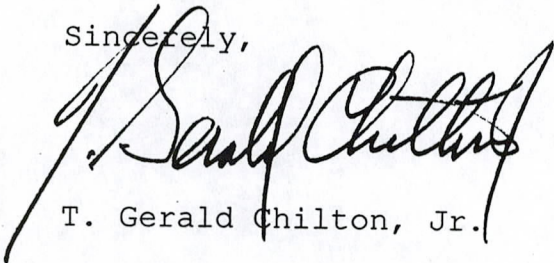 Sincerely,
T. Gerald Chilton
T. Gerald Chilton, Jr.